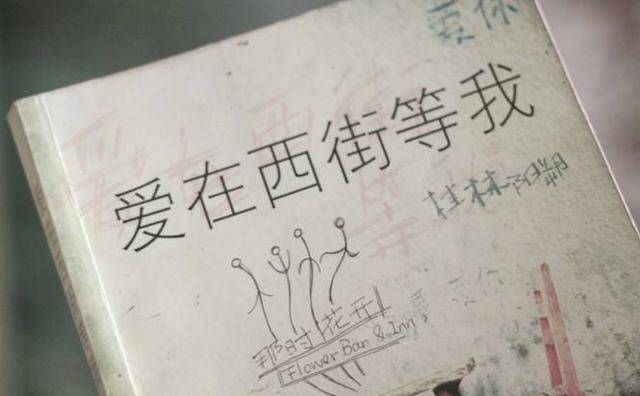 爱你
爱在西街等我
桂林-阳朔
爱 爱你
那时花开
Flower Bar & Inn